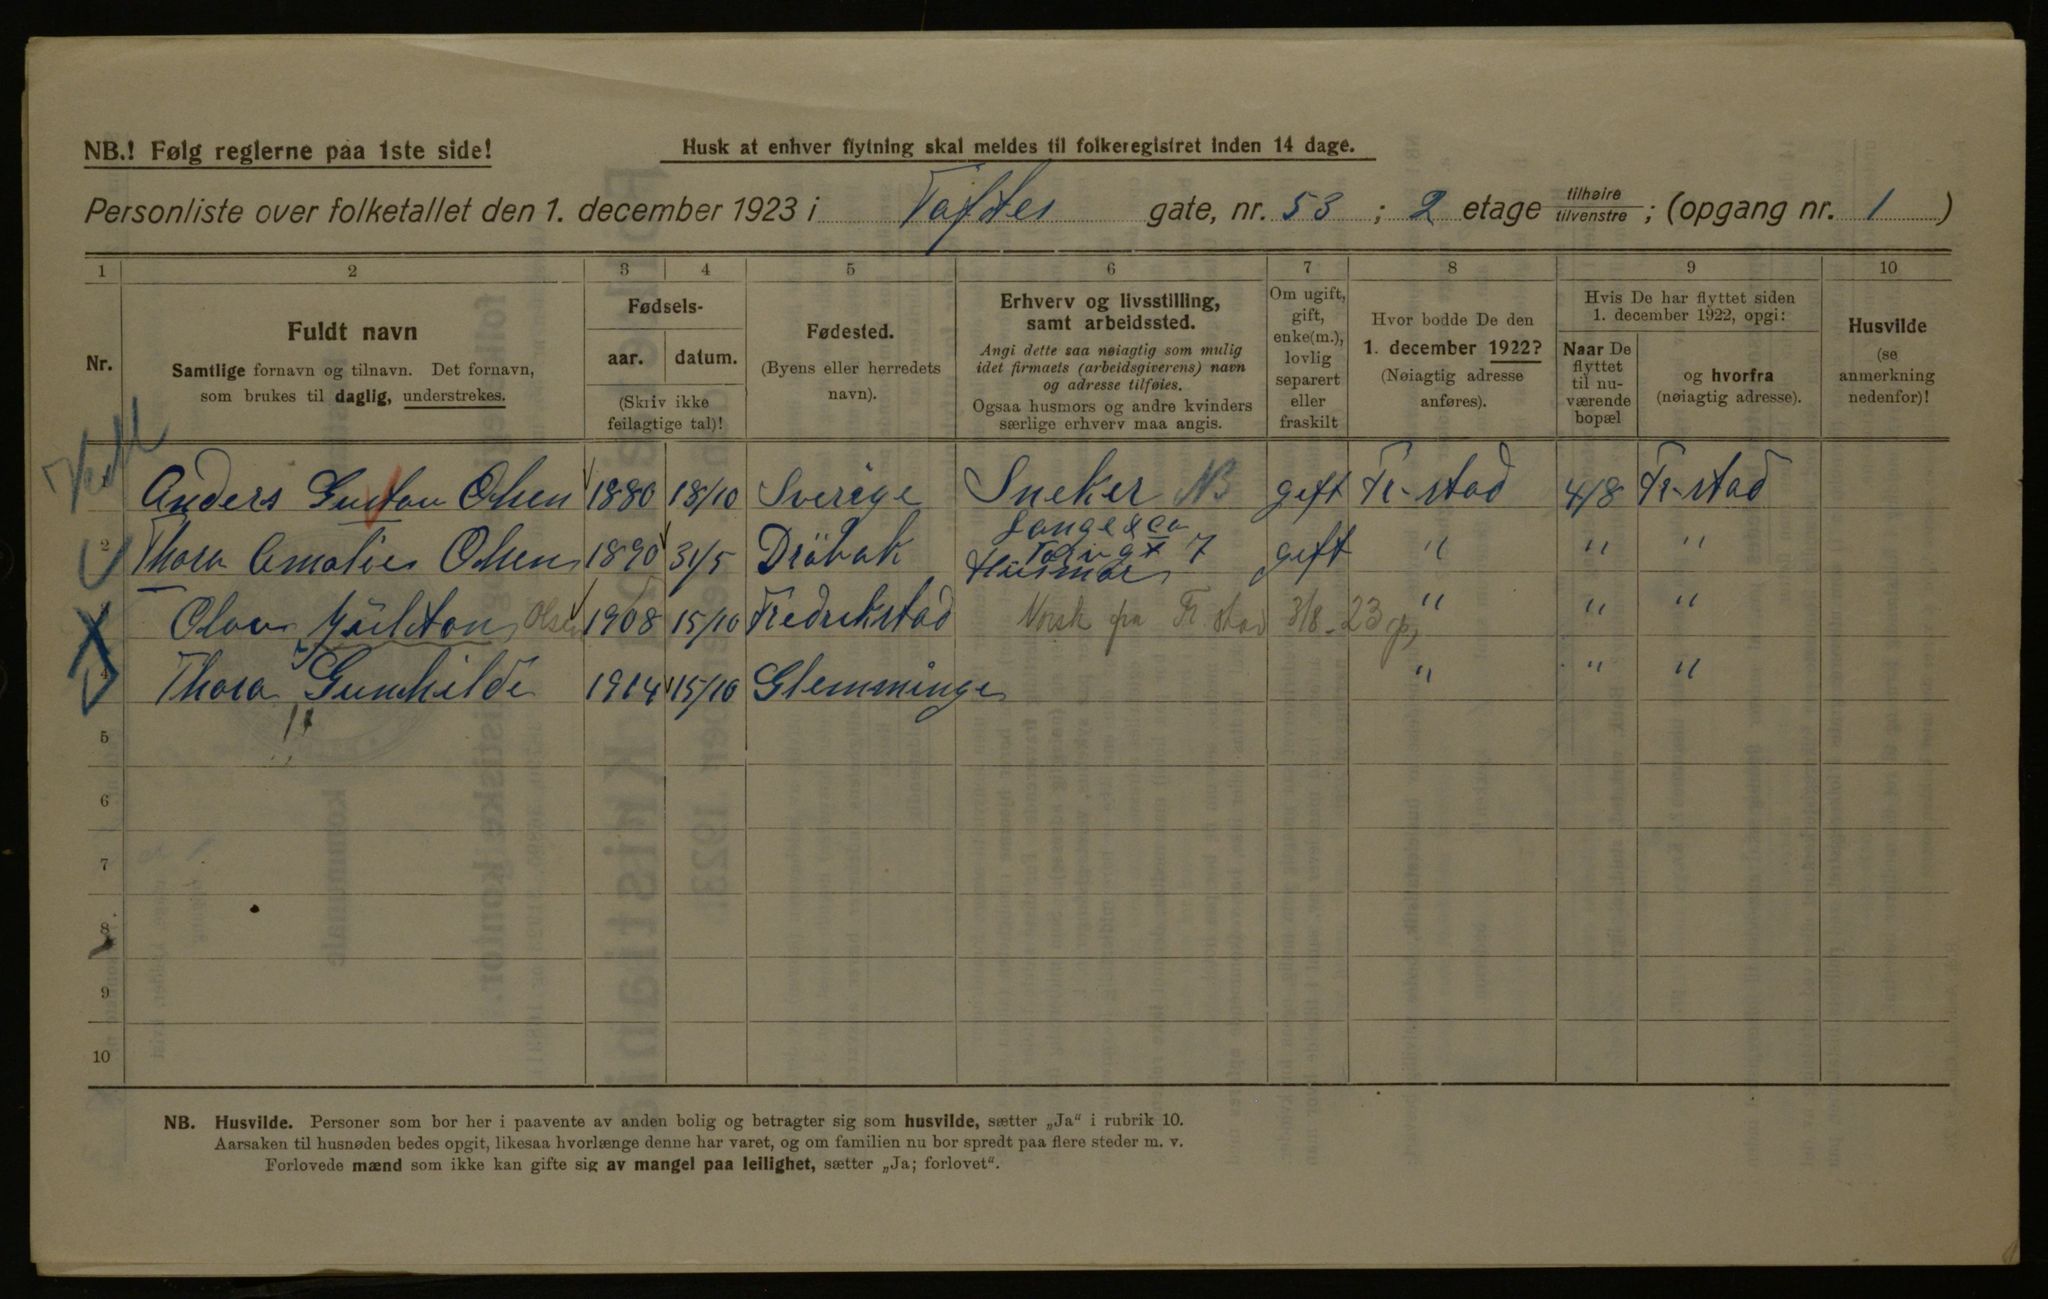 NB.! Følg reglerne paa 1ste side!
Husk at enhver flytning skal meldes til folkeregistret inden 14 dage.
Personliste over folketallet den 1. december 1923 i Toftes gate, nr. 53 ; 2 etage tilhøire tilvenstre ; (opgang nr. 1 )
1 2 3 4 5 6 7 8 9 10
Nr.
Fuldt navn
Samtlige fornavn og tilnavn. Det fornavn,
som brukes til daglig, understrekes.
Fødsels-
aar. datum.
(Skriv ikke
feilagtige tal)!
Fødested.
(Byens eller herredets
navn).
Erhverv og livsstilling,
samt arbeidssted.
Angi dette saa nøiagtig som mulig
idet firmaets (arbeidsgiverens) navn
og adresse tilføies.
Ogsaa husmors og andre kvinders
særlige erhverv maa angis.
Om ugift,
gift,
enke(m.),
lovlig
separert
eller
fraskilt
Hvor bodde De den
1. december 1922?
(Nøiagtig adresse
anføres).
Hvis De har flyttet siden
1. december 1922, opgi:
Naar De
flyttet
til nu-
værende
bopæl
og hvorfra
(nøiagtig adresse).
Husvilde
(se
anmerkning
nedenfor)!
Anders Gustav Olsen 1880 18/10 Sverige Sneker NB gift Fr-stad 4/8 Fr-stad
Lange & Co
Torvgt 7
2 Thora Amalie Olsen 1890 31/5 Dröbak Husmor gift " " "
Olav Milton Olsen 1908 15/10 Fredrikstad Norsk fra Fr.stad 3/8-23 " " "
4 Thora Gunhilde 1914 15/10 Glemminge " " "
5
6
7
8
9
10
NB. Husvilde. Personer som bor her i paavente av anden bolig og betragter sig som husvilde, sætter „Ja“ i rubrik 10.
Aarsaken til husnøden bedes opgit, likesaa hvorlænge denne har varet, og om familien nu bor spredt paa flere steder m. v.
Forlovede mænd som ikke kan gifte sig av mangel paa leilighet, sætter „Ja; forlovet“.